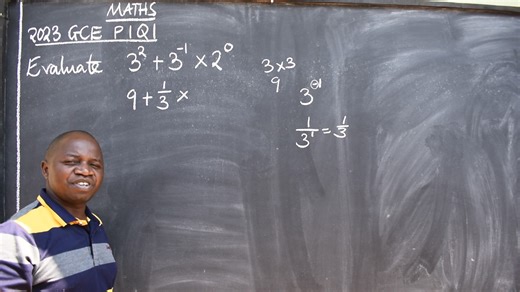 MATHS
2023 GCE P1Q1
Evaluate 3² + 3⁻¹ × 2⁰
9 + 1/3 ×
3 × 3
9
3⁻¹
1/3¹ = 1/3